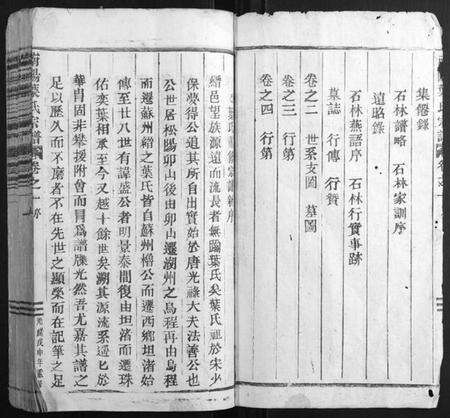 集僊錄
石林譜略 石林家訓序
遠略錄
石林燕語序 石林行實事跡
墓誌 行傳 行贊
卷之二 世系支圖 墓圖
卷之三 行第
卷之四 行第
葉氏宗譜
葉氏重修宗譜序
縉邑望族源遠而流長者無踰葉氏矣葉氏祖於宋少
保夢得公道其所自出實始於唐光祿大夫法善公也
公世居松陽卯山後由卯山遷湖州之烏程再由烏程
而遷蘇州縉之葉氏皆自蘇州櫓公而遷西鄉坦渚始
傳至廿八世有諱盛公者明景泰間復由坦渚而遷珠
佑奕葉相承至今又越十餘世矣溯其源流系遥匕於
華胄固非攀援附會而爲譜牒光然吾尤嘉其譜之
足以歷久而不磨者不在先世之顯榮而在記筆之足
陽葉氏宗譜 卷之一 序
光緒戊申年